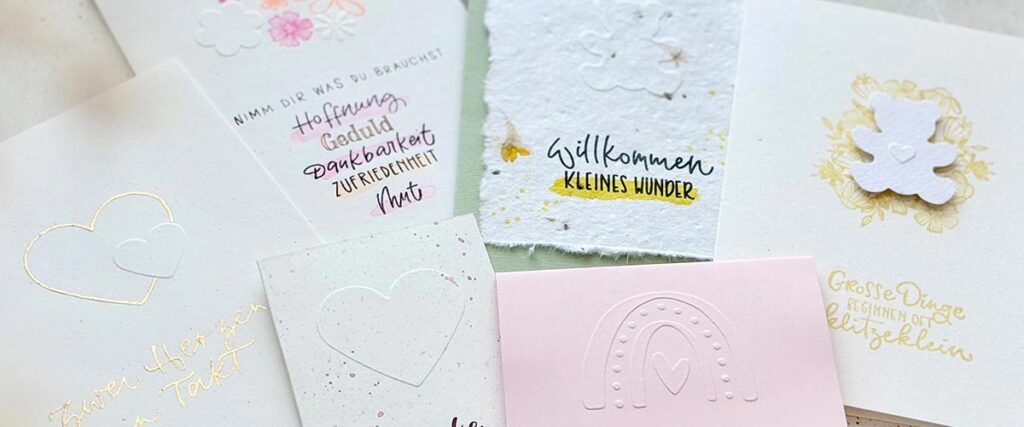 NIMM DIR WAS DU BRAUCHST
Hoffnung
Geduld
Dankbarkeit
ZUFRIEDENHEIT
Mut
Willkommen
KLEINES WUNDER
GROSSE DINGE
BEGINNEN OFT
klitzeklein
Zwei Herzen
ein TAKT